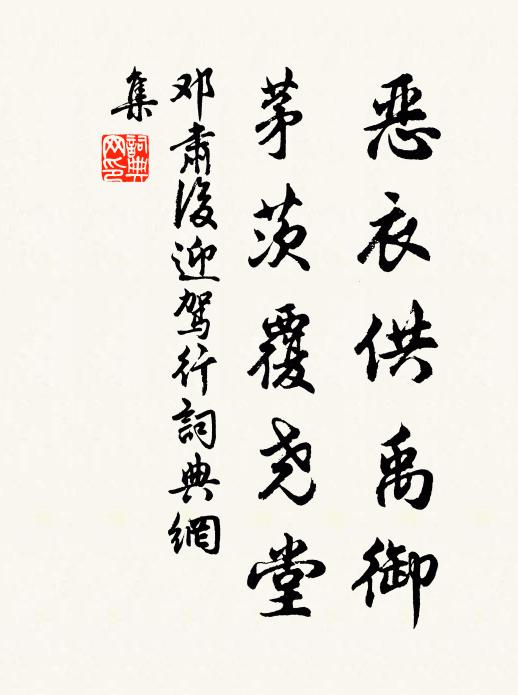 恶衣供禹御
茅茨覆尧堂
邓肃後迎驾行詞典網
集
詞典
网印